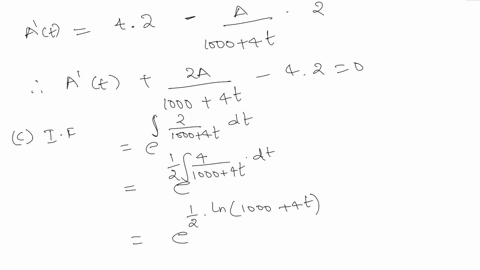 A'(t) = 4.2 - A/(1000+4t) . 2
∴ A'(t) + 2A/(1000+4t) - 4.2 = 0
(c) I.F = e^(∫ 2/(1000+4t) dt)
= e^(1/2 ∫ 4/(1000+4t) . dt)
= e^(1/2 . ln(1000+4t))